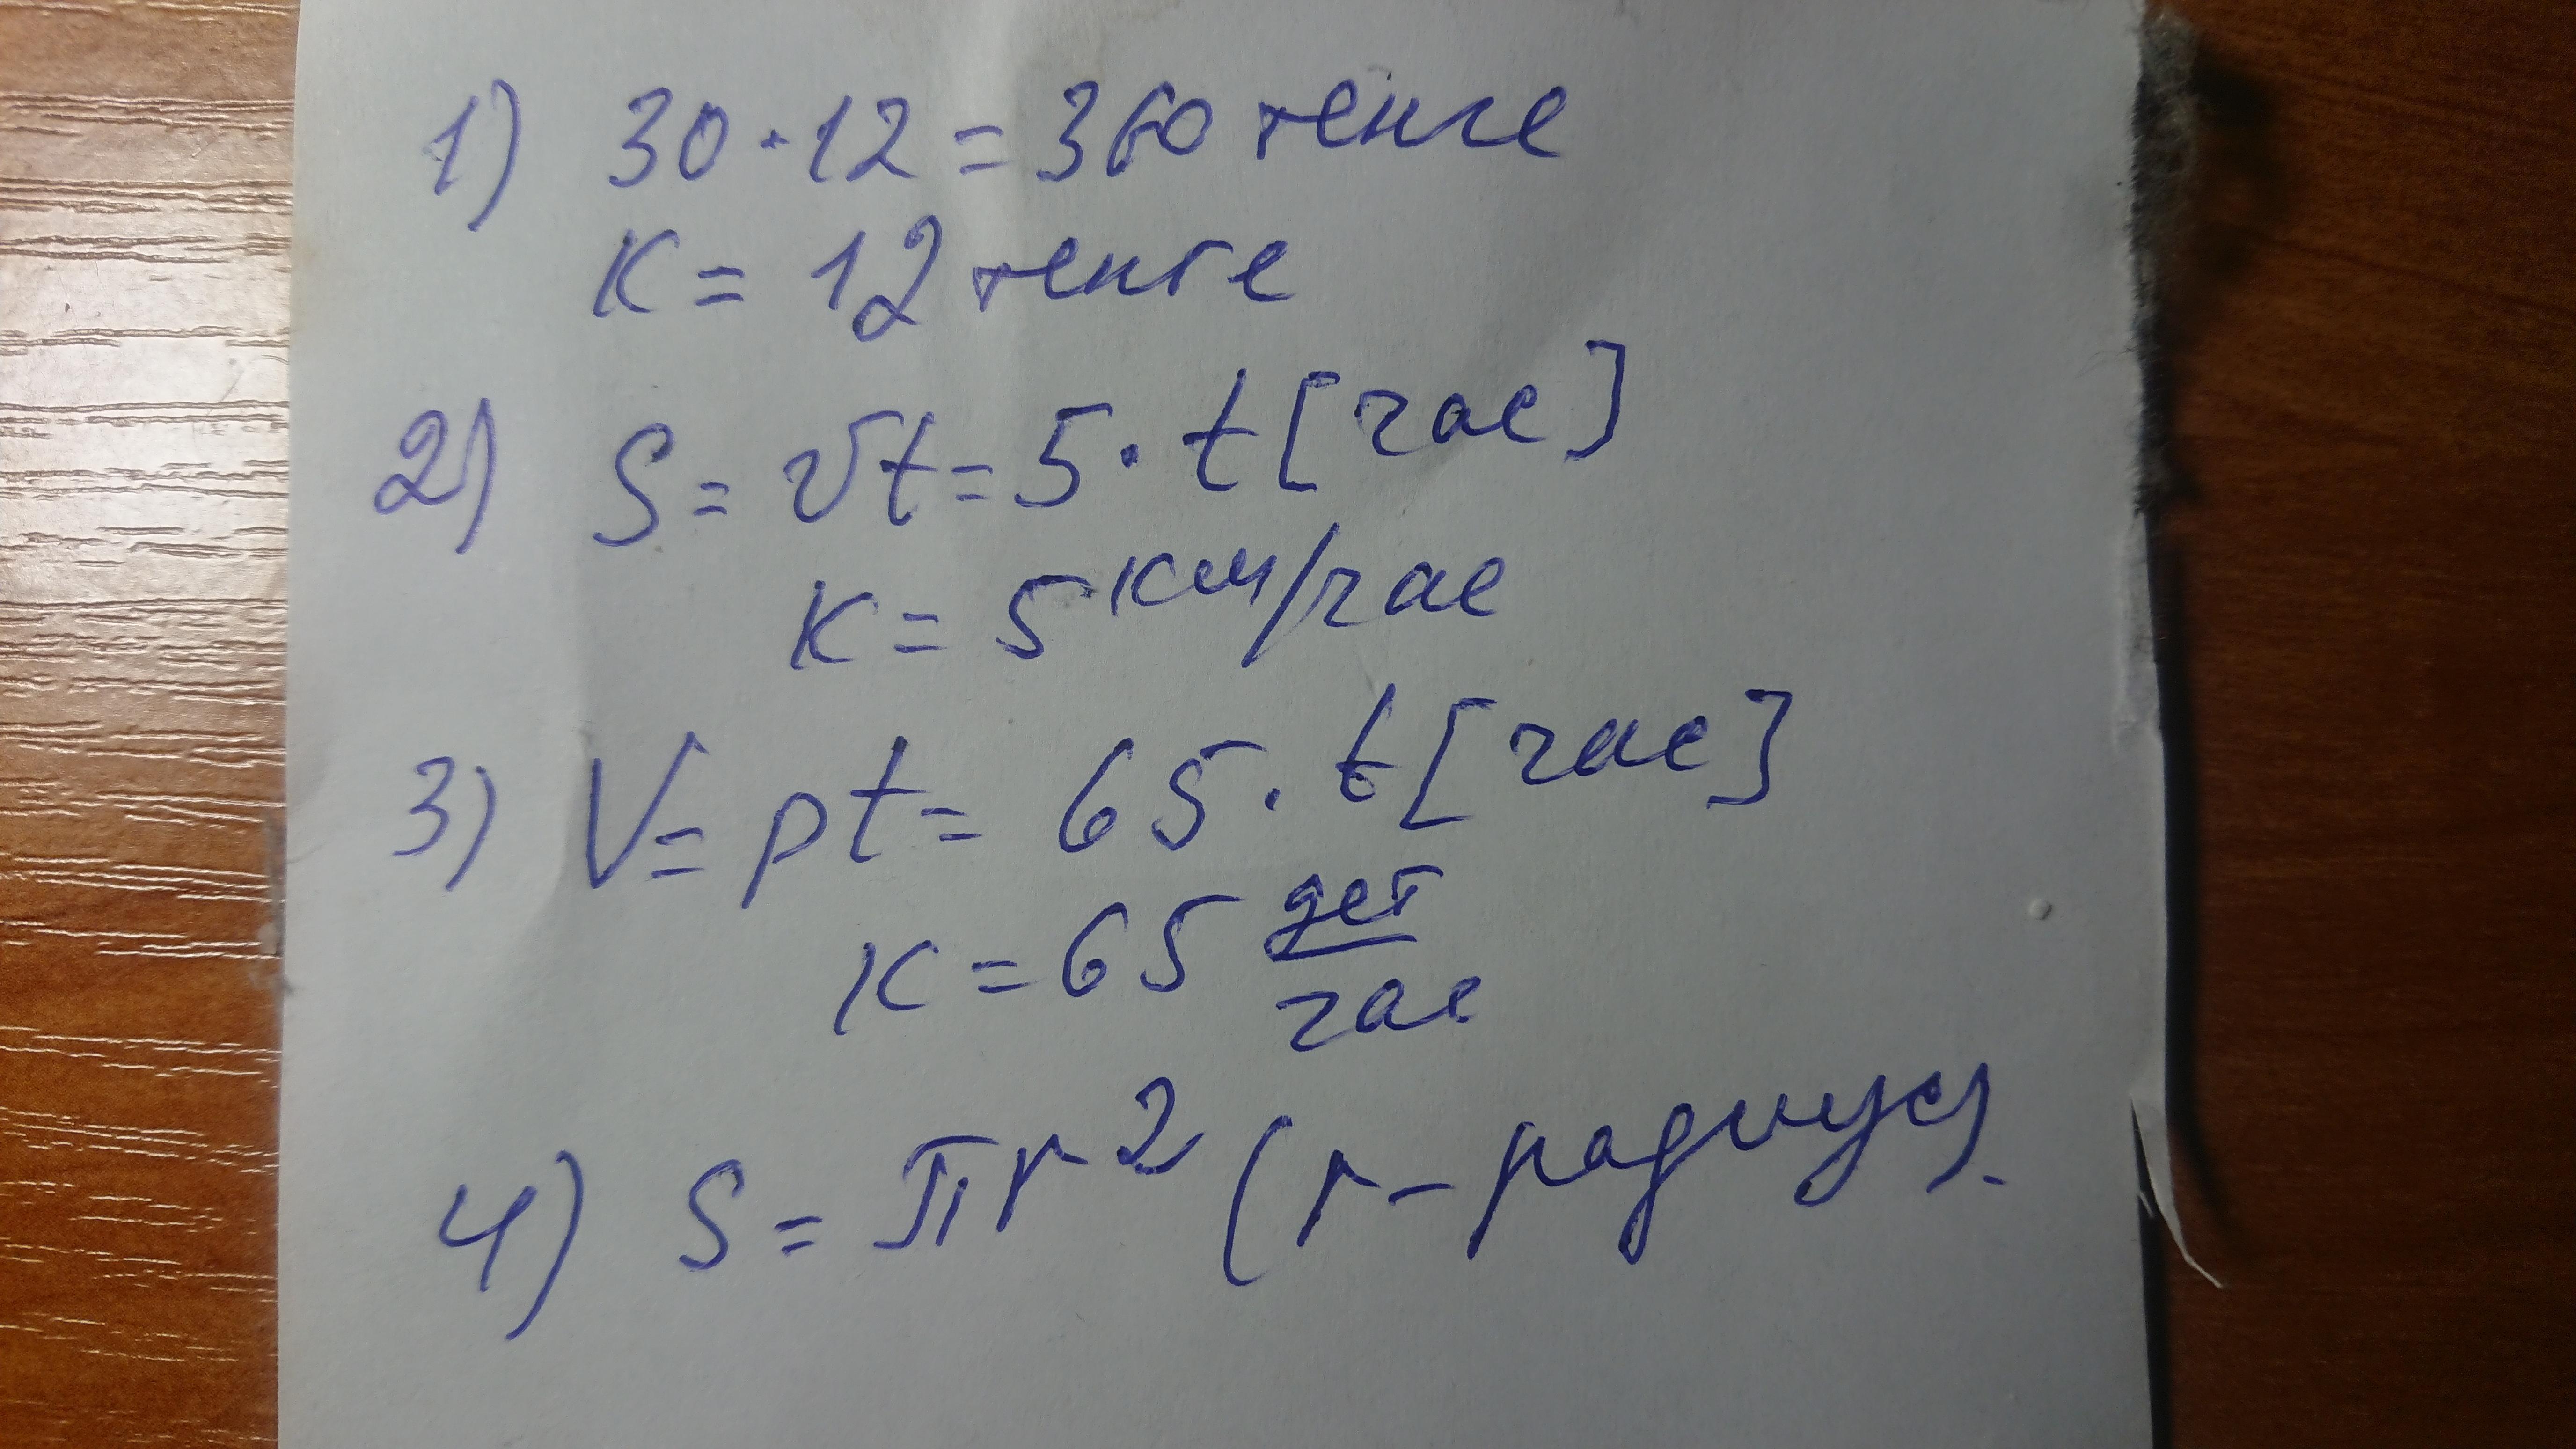 1) 30 · 12 = 360 тенге
К = 12 тенге
2) S = vt = 5 · t [час]
К = 5 км/час
3) V = pt = 65 · t [час]
К = 65 дет/час
4) S = πr² (r – радиус).